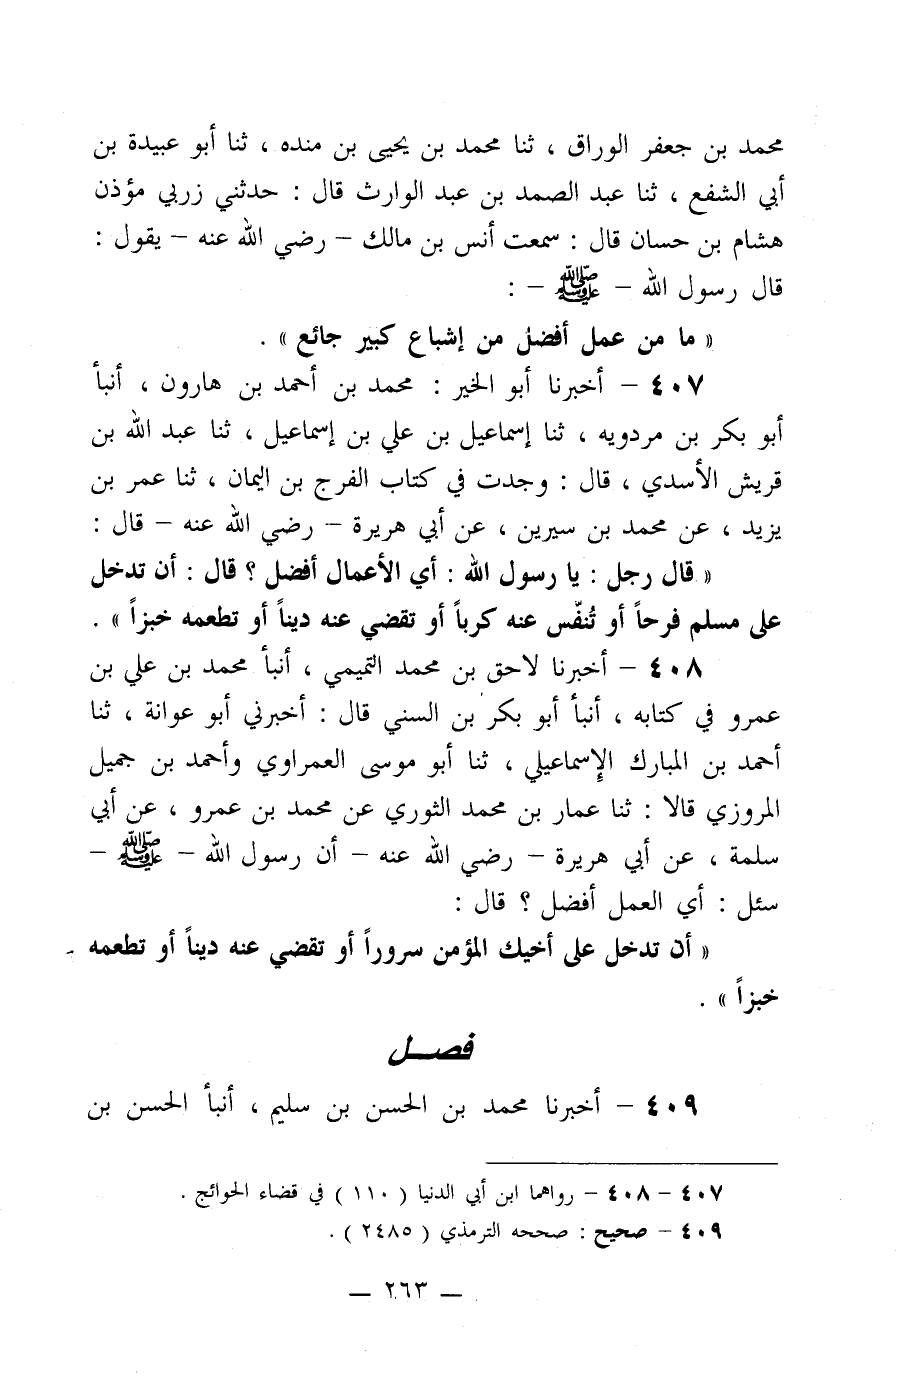 محمد بن جعفر الوراق ، ثنا محمد بن يحيى بن منده ، ثنا أبو عبيدة بن
أبي الشفع ، ثنا عبد الصمد بن عبد الوارث قال : حدثني زربي مؤذن
هشام بن حسان قال : سمعت أنس بن مالك – رضي الله عنه – يقول :
قال رسول الله – ﷺ – :
« ما من عمل أفضل من إشباع كبير جائع » .
٤٠٧ – أخبرنا أبو الخير : محمد بن أحمد بن هارون ، أنبأ
أبو بكر بن مردويه ، ثنا إسماعيل بن علي بن إسماعيل ، ثنا عبد الله بن
قريش الأسدي ، قال : وجدت في كتاب الفرج بن اليمان ، ثنا عمر بن
يزيد ، عن محمد بن سيرين ، عن أبي هريرة – رضي الله عنه – قال :
« قال رجل : يا رسول الله : أي الأعمال أفضل ؟ قال : أن تدخل
على مسلم فرحاً أو تُنفّس عنه كرباً أو تقضي عنه ديناً أو تطعمه خبزاً » .
٤٠٨ – أخبرنا لاحق بن محمد التميمي ، أنبأ محمد بن علي بن
عمرو في كتابه ، أنبأ أبو بكر بن السني قال : أخبرني أبو عوانة ، ثنا
أحمد بن المبارك الإسماعيلي ، ثنا أبو موسى العمراوي وأحمد بن جميل
المروزي قالا : ثنا عمار بن محمد الثوري عن محمد بن عمرو ، عن أبي
سلمة ، عن أبي هريرة – رضي الله عنه – أن رسول الله – ﷺ –
سئل : أي العمل أفضل ؟ قال :
« أن تدخل على أخيك المؤمن سروراً أو تقضي عنه ديناً أو تطعمه
خبزاً » .
فصل
٤٠٩ – أخبرنا محمد بن الحسن بن سليم ، أنبأ الحسن بن
٤٠٧ – ٤٠٨ – رواهما ابن أبي الدنيا ( ١١٠ ) في قضاء الحوائج .
٤٠٩ – صحيح : صححه الترمذي ( ٢٤٨٥ ) .
– ٢٦٣ –